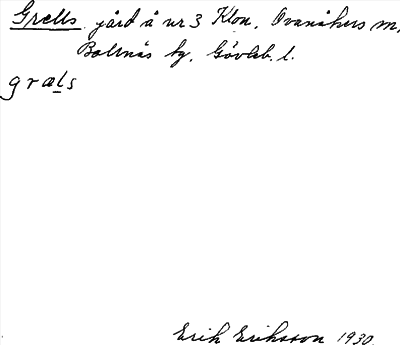 Grells gård å nr 3 Klon, Ovanåkers m,
Bollnäs by. Gävleb. l.
græls
Erik Eriksson 1930.